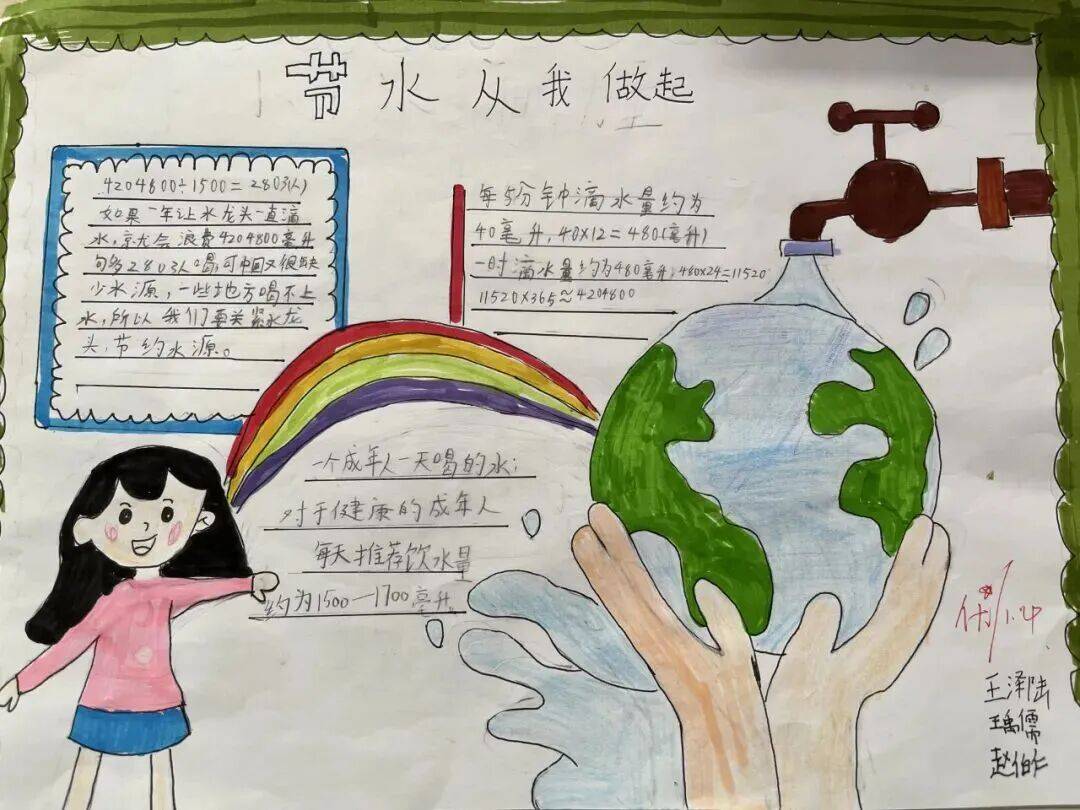 节水从我做起
4204800÷1500=2803(人)
如果一年让水龙头一直滴
水,就会浪费4204800毫升
句多2803人喝,可中国又很缺
少水源,一些地方喝不上
水,所以我们要关紧水龙
头,节约水源。
每5分钟滴水量约为
40毫升,40×12=480(毫升)
一时滴水量约为480毫升;480×24=11520
11520×365≈4204800
一个成年人一天喝的水:
对于健康的成年人
每天推荐饮水量
约为1500—1700毫升。
优
1.4
王泽陆
王禹儒
赵伯仁